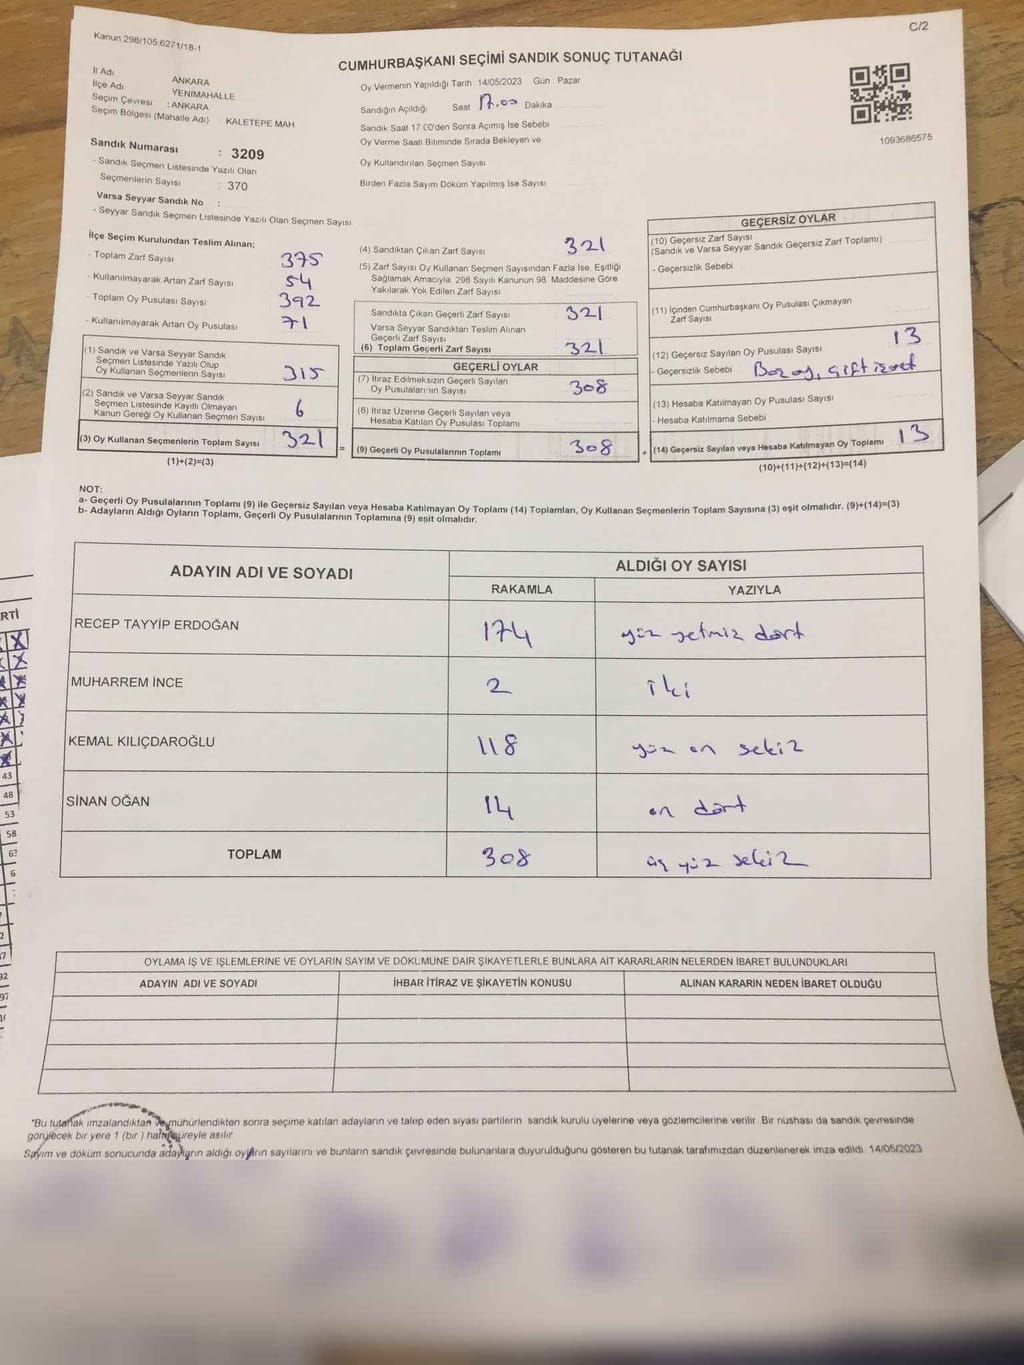 Kanun.298/105;6271/18-1
C/2
CUMHURBAŞKANI SEÇİMİ SANDIK SONUÇ TUTANAĞI
İl Adı ANKARA
İlçe Adı YENİMAHALLE
Seçim Çevresi : ANKARA
Seçim Bölgesi (Mahalle Adı) KALETEPE MAH
Sandık Numarası : 3209
- Sandık Seçmen Listesinde Yazılı Olan
Seçmenlerin Sayısı : 370
Varsa Seyyar Sandık No :
- Seyyar Sandık Seçmen Listesinde Yazılı Olan Seçmen Sayısı
Oy Vermenin Yapıldığı Tarih 14/05/2023 Gün Pazar
Sandığın Açıldığı Saat 17.00 Dakika
Sandık Saat 17 00'den Sonra Açımış İse Sebebi
Oy Verme Saati Bitiminde Sırada Bekleyen ve
Oy Kullandırılan Seçmen Sayısı
Birden Fazla Sayım Döküm Yapılmış İse Sayısı
1093686575
İlçe Seçim Kurulundan Teslim Alınan;
- Toplam Zarf Sayısı 375
- Kullanılmayarak Artan Zarf Sayısı 54
- Toplam Oy Pusulası Sayısı 392
- Kullanılmayarak Artan Oy Pusulası 71
(1) Sandık ve Varsa Seyyar Sandık
Seçmen Listesinde Yazılı Olup
Oy Kullanan Seçmenlerin Sayısı 315
(2) Sandık ve Varsa Seyyar Sandık
Seçmen Listesinde Kayıtlı Olmayan
Kanun Gereği Oy Kullanan Seçmen Sayısı 6
(3) Oy Kullanan Seçmenlerin Toplam Sayısı 321 =
(1)+(2)=(3)
(4) Sandıktan Çıkan Zarf Sayısı 321
(5) Zarf Sayısı Oy Kullanan Seçmen Sayısından Fazla İse, Eşitliği
Sağlamak Amacıyla, 298 Sayılı Kanunun 98. Maddesine Göre
Yakılarak Yok Edilen Zarf Sayısı
Sandıkta Çıkan Geçerli Zarf Sayısı 321
Varsa Seyyar Sandıktan Teslim Alınan
Geçerli Zarf Sayısı
(6) Toplam Geçerli Zarf Sayısı 321
GEÇERLİ OYLAR
(7) İtiraz Edilmeksizin Geçerli Sayılan
Oy Pusulalarının Sayısı 308
(8) İtiraz Üzerine Geçerli Sayılan veya
Hesaba Katılan Oy Pusulası Toplamı
(9) Geçerli Oy Pusulalarının Toplamı 308 +
GEÇERSİZ OYLAR
(10) Geçersiz Zarf Sayısı
(Sandık ve Varsa Seyyar Sandık Geçersiz Zarf Toplamı)
- Geçersizlik Sebebi
(11) İçinden Cumhurbaşkanı Oy Pusulası Çıkmayan
Zarf Sayısı
(12) Geçersiz Sayılan Oy Pusulası Sayısı 13
- Geçersizlik Sebebi Boz oy, çift işaret
(13) Hesaba Katılmayan Oy Pusulası Sayısı
- Hesaba Katılmama Sebebi
(14) Geçersiz Sayılan veya Hesaba Katılmayan Oy Toplamı 13
(10)+(11)+(12)+(13)=(14)
NOT:
a- Geçerli Oy Pusulalarının Toplamı (9) ile Geçersiz Sayılan veya Hesaba Katılmayan Oy Toplamı (14) Toplamları, Oy Kullanan Seçmenlerin Toplam Sayısına (3) eşit olmalıdır. (9)+(14)=(3)
b- Adayların Aldığı Oyların Toplamı, Geçerli Oy Pusulalarının Toplamına (9) eşit olmalıdır.
ADAYIN ADI VE SOYADI ALDIĞI OY SAYISI
RAKAMLA YAZIYLA
RECEP TAYYİP ERDOĞAN 174 yüz yetmiz dört
MUHARREM İNCE 2 iki
KEMAL KILIÇDAROĞLU 118 yüz on sekiz
SİNAN OĞAN 14 on dört
TOPLAM 308 üç yüz sekiz
OYLAMA İŞ VE İŞLEMLERİNE VE OYLARIN SAYIM VE DÖKÜMÜNE DAİR ŞİKAYETLERLE BUNLARA AİT KARARLARIN NELERDEN İBARET BULUNDUKLARI
ADAYIN ADI VE SOYADI İHBAR İTİRAZ VE ŞİKAYETİN KONUSU ALINAN KARARIN NEDEN İBARET OLDUĞU
"Bu tutanak imzalandıktan ve mühürlendikten sonra seçime katılan adayların ve talep eden siyasi partilerin sandık kurulu üyelerine veya gözlemcilerine verilir. Bir nüshası da sandık çevresinde
görülecek bir yere 1 (bir) hafta süreyle asılır
Sayım ve döküm sonucunda adayların aldığı oyların sayılarını ve bunların sandık çevresinde bulunanlara duyurulduğunu gösteren bu tutanak tarafımızdan düzenlenerek imza edildi. 14/05/2023
RTİ
43
48
53
58
63